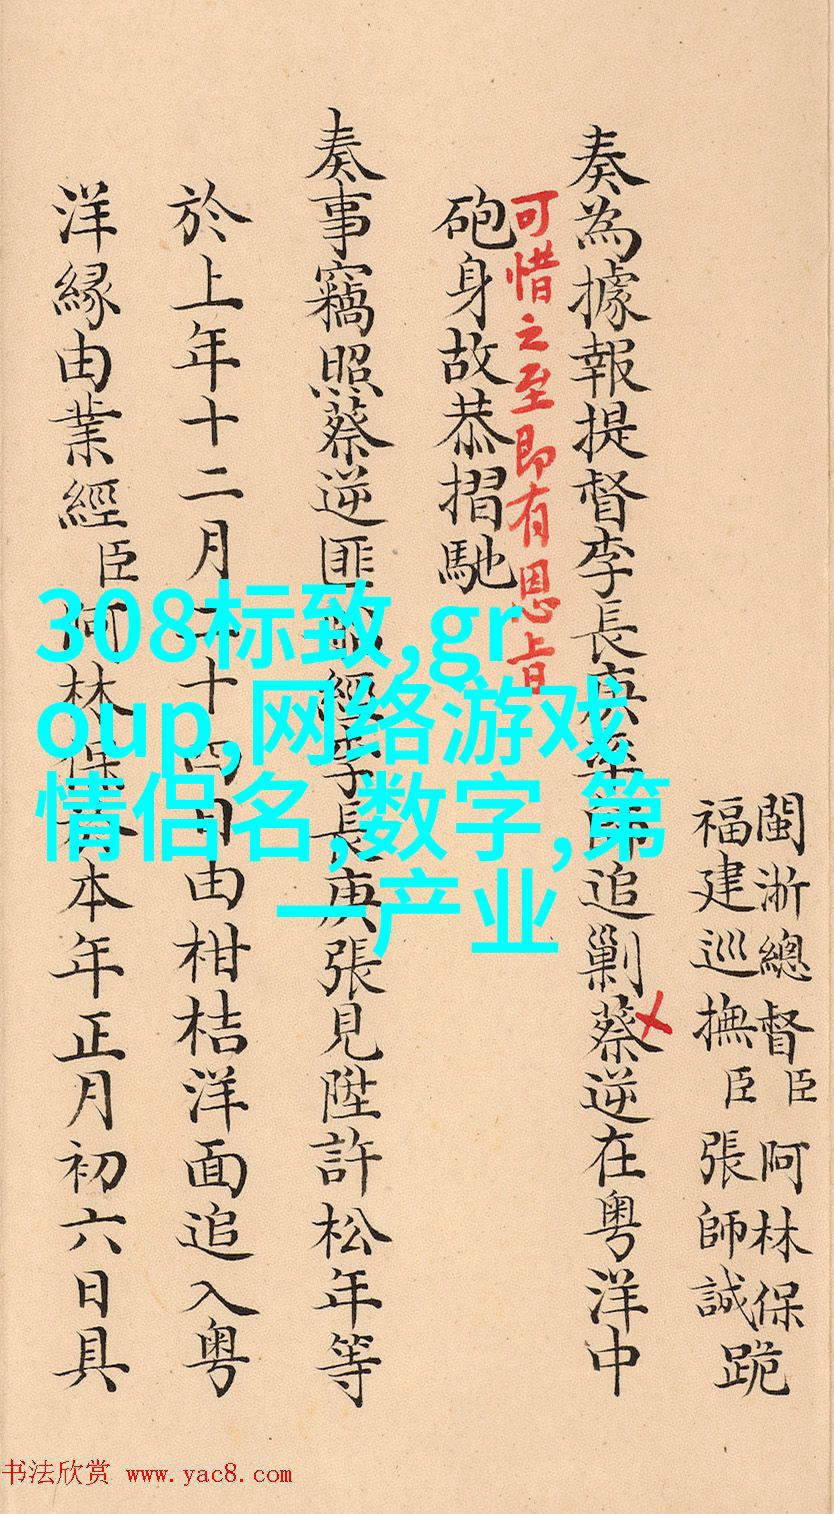 閩浙總督臣阿林保
福建巡撫臣張師誠
跪
奏為據報提督李長庚師追剿蔡逆在粵洋中
可惜之至即有恩旨
砲身故恭摺馳
奏事竊照蔡逆匪經李長庚張見陞許松年等
於上年十二月二十四日由柑桔洋面追入粵
洋緣由業經臣阿林保於本年正月初六日具
308标致,gr
oup,网络游戏
情侣名,数字,第
一产业
书法欣赏 www.yac8.com